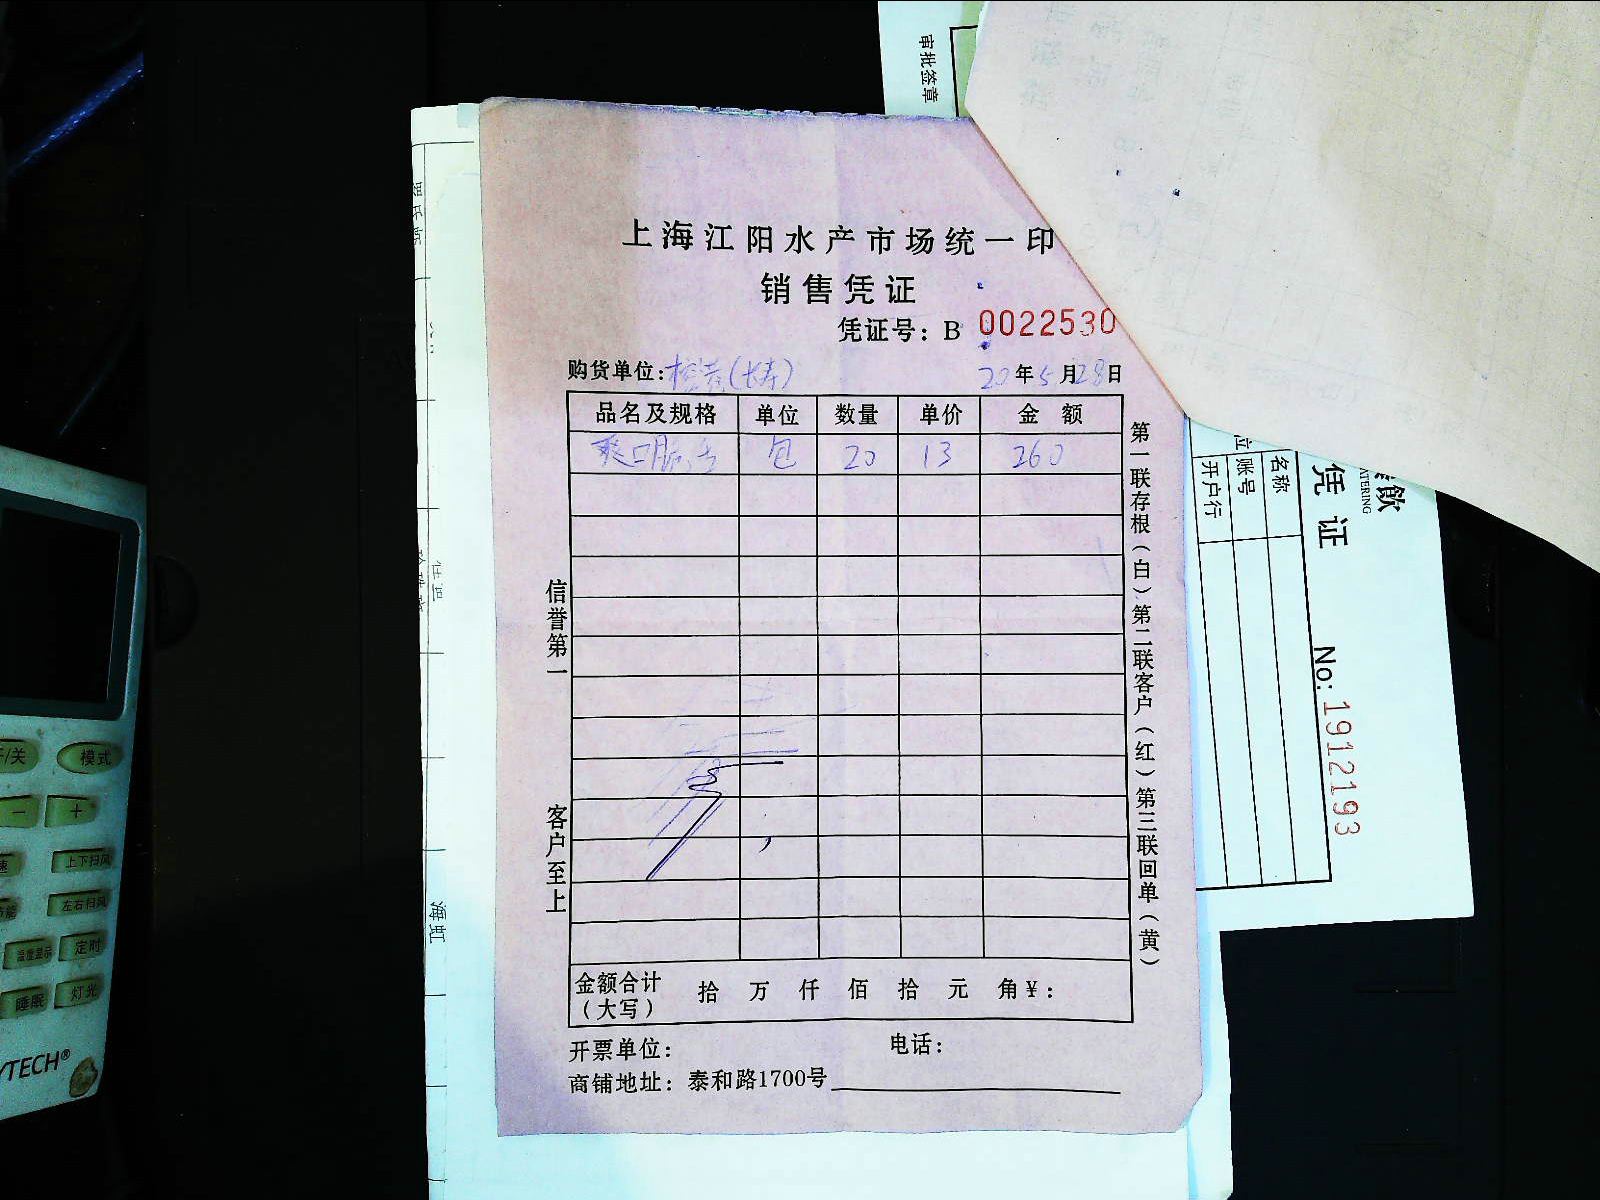 审批签章
上海江阳水产市场统一印
销售凭证
凭证号：B 0022530
购货单位：(长寿)
20年5月28日
品名及规格 单位 数量 单价 金额
爽口 包 20 13 260
信誉第一
客户至上
第一联存根（白）第二联客户（红）第三联回单（黄）
金额合计（大写） 拾 万 仟 佰 拾 元 角￥：
开票单位： 电话：
商铺地址：泰和路1700号
名称
账号
开户行
位
飲
ATERING
凭证
No: 1912193
/关 模式
－ ＋
速 上下扫风
左右扫风
温度显示 定时
睡眠 灯光
YTECH®